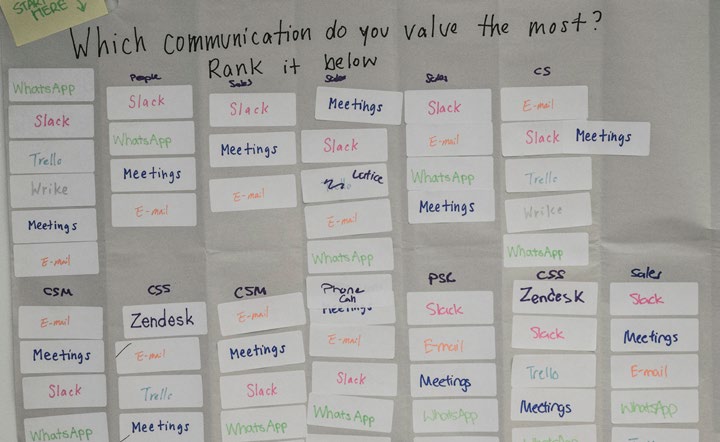 START
HERE
Which communication do you value the most?
Rank it below
WhatsApp
Slack
Trello
Wrike
Meetings
E-mail
People
Slack
WhatsApp
Meetings
E-mail
Sales
Slack
Meetings
E-mail
Sales
Meetings
Slack
Lattice
E-mail
WhatsApp
Sales
Slack
E-mail
WhatsApp
Meetings
CS
E-mail
Slack Meetings
Trello
Wrike
WhatsApp
CSM
E-mail
Meetings
Slack
WhatsApp
CSS
Zendesk
E-mail
Trello
Meetings
CSM
E-mail
Meetings
Slack
WhatsApp
Phone
Call
Meetings
E-mail
Slack
WhatsApp
PSC
Slack
E-mail
Meetings
WhatsApp
CSS
Zendesk
Slack
Trello
Meetings
WhatsApp
Sales
Slack
Meetings
E-mail
WhatsApp